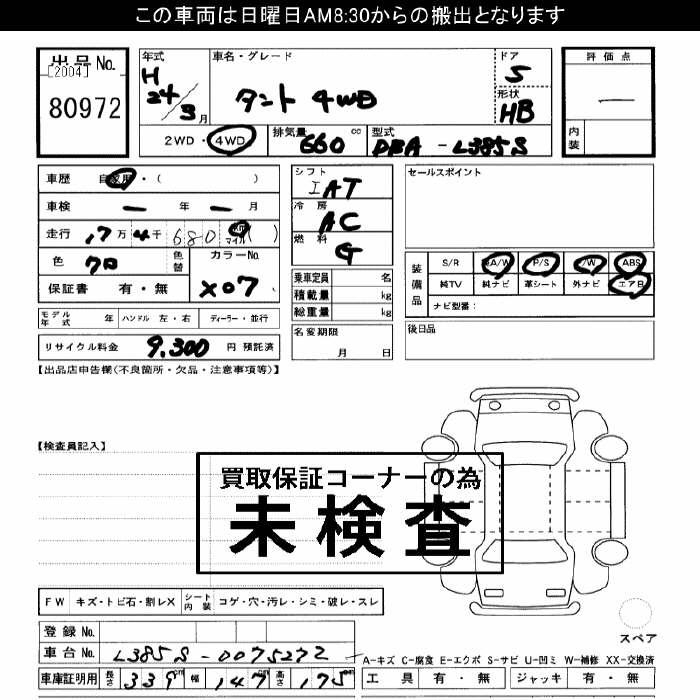 この車両は日曜日AM8:30からの搬出となります
出品No.
[2004]
80972
年式 車名・グレード ドア 評価点
H 24/3月 タント 4WD 5
形状 HB
2WD・4WD 排気量 660 cc 型式 DBA-L385S 内装
車歴 自家用・( )
シフト IAT
セールスポイント
車検 ー 年 ー 月
冷房 AC
走行 17万4千680 マイル ( )
燃料 G
色 クロ 色替 カラーNo. X07
保証書 有・無
乗車定員 名
積載量 kg
総重量 kg
装備品 S/R A/W P/S P/W ABS
純TV 純ナビ 革シート 外ナビ エアB
ナビ型番:
モデル年式 年 ハンドル 左・右 ディーラー・並行
名変期限 月 日
後日品
リサイクル料金 9,300 円 預託済
【出品店申告欄(不良箇所・欠品・注意事項等)】
【検査員記入】
買取保証コーナーの為
未検査
FW キズ・トビ石・割レX シート内装 コゲ・穴・汚レ・シミ・破レ・スレ
スペア
登録No.
車台No. L385S-0075272
A-キズ C-腐食 E-エクボ S-サビ U-凹ミ W-補修 XX-交換済
車庫証明用 長さ 339cm 幅 147cm 高さ 175cm
工具 有・無 ジャッキ 有・無